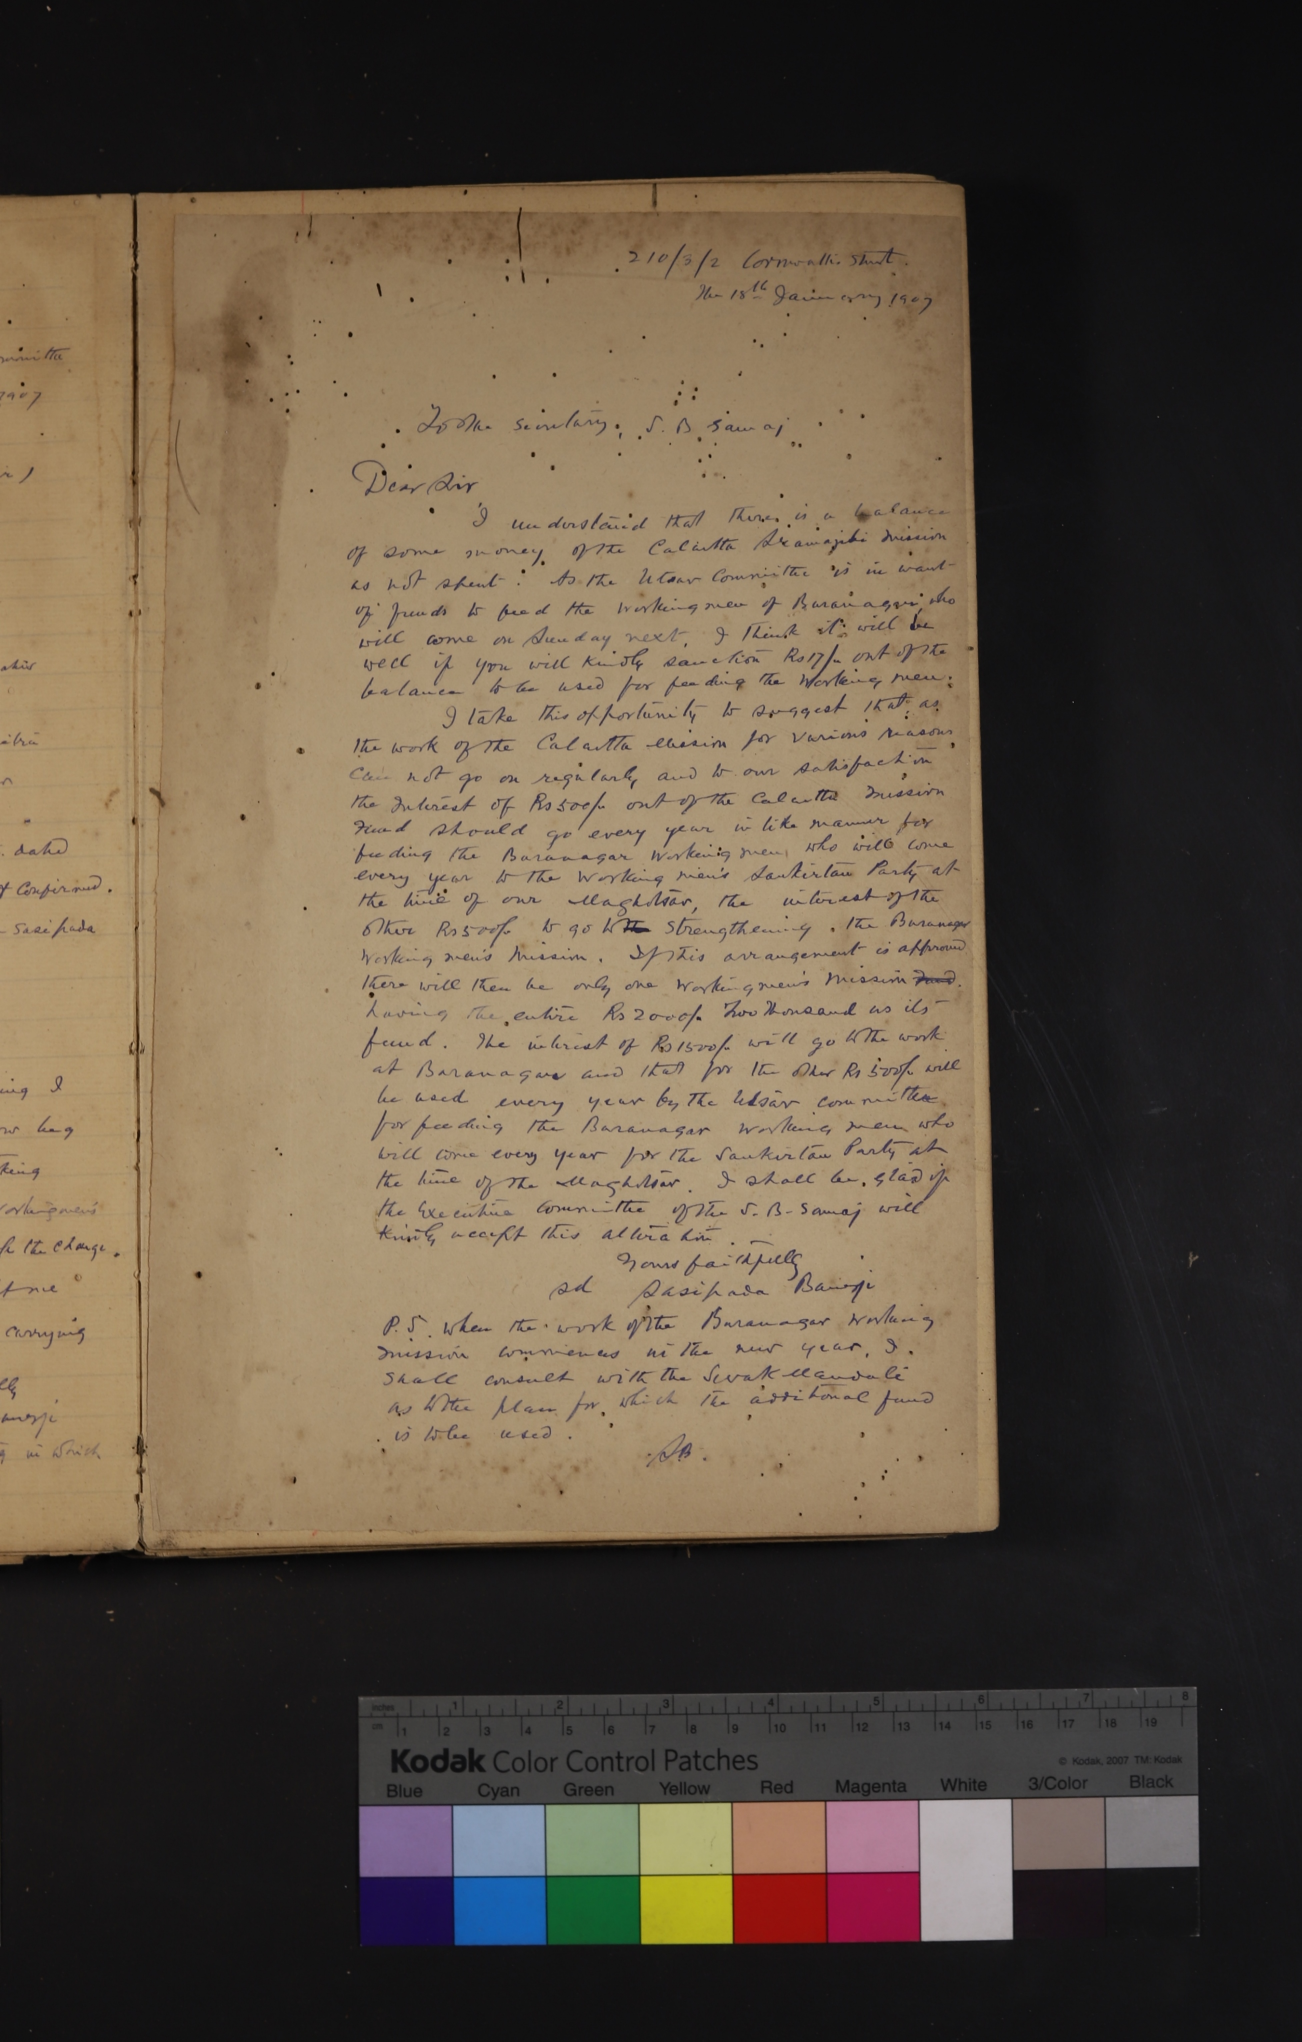 mmittee
1907
dated
& confirmed.
Sasipada
ing I
now beg
king
workingmen's
the charge.
of me
carrying
in which
210/3/2 Cornwallis Street.
The 18th January 1907
To the Secretary, S. B. Samaj
Dear Sir
I understand that there is a balance
of some money of the Calcutta Sramajibi Mission
as not spent. As the Utsav Committee is in want
of funds to feed the working men of Baranagar who
will come on Sunday next, I think it will be
well if you will kindly sanction Rs 17/- out of the
balance to be used for feeding the working men.
I take this opportunity to suggest that as
the work of the Calcutta Mission for various reasons
can not go on regularly and to our satisfaction
the Interest of Rs 500/- out of the Calcutta Mission
Fund should go every year in like manner for
feeding the Baranagar working men, who will come
every year to the working men's Sankirtan Party at
the time of our Maghotsav, the interest of the
other Rs 500/- to go to the strengthening. the Baranagar
working men's Mission. If this arrangement is approved
there will then be only one workingmen's Mission Fund.
having the entire Rs 2000/- Two thousand as its
fund. The interest of Rs 1500/- will go to the work
at Baranagar and that for the other Rs 500/- will
be used every year by the Utsav committee
for feeding the Baranagar working men who
will come every year for the Sankirtan Party at
the time of the Maghotsav. I shall be glad if
the Executive Committee of the S. B. Samaj will
kindly accept this alteration.
Yours faithfully
sd Sasipada Banerji
P.S. When the work of the Baranagar working
mission commences in the new year, I
shall consult with the Sevak Mandali
as to the plan for which the additional fund
is to be used.
SB.
inches 1 2 3 4 5 6 7 8
cm 1 2 3 4 5 6 7 8 9 10 11 12 13 14 15 16 17 18 19
Kodak Color Control Patches © Kodak, 2007 TM: Kodak
Blue Cyan Green Yellow Red Magenta White 3/Color Black